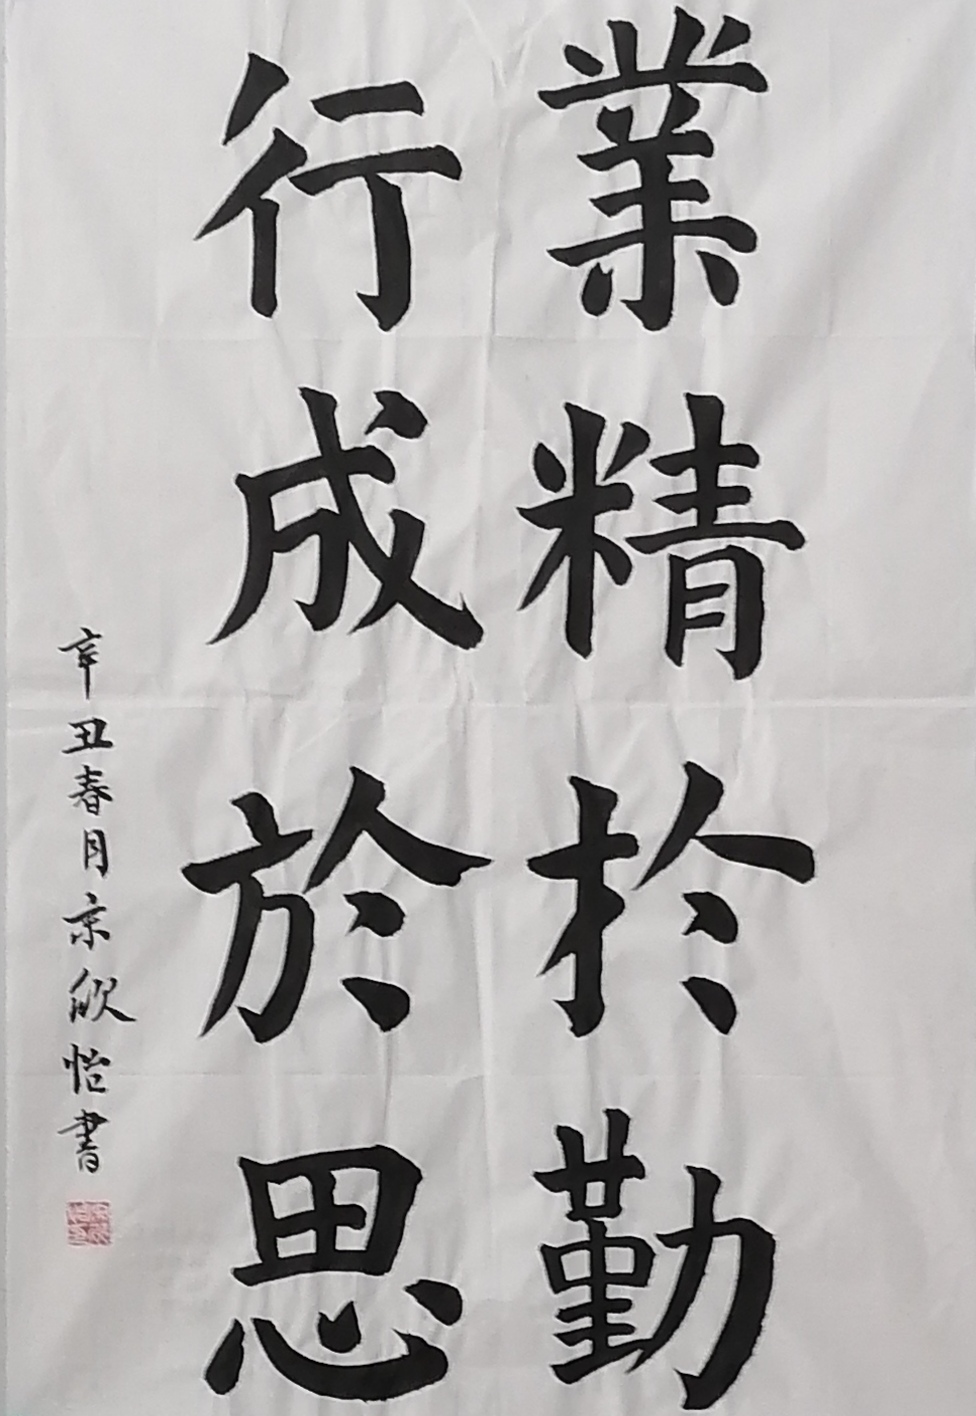 業精於勤
行成於思
辛丑春月宗欣怡書